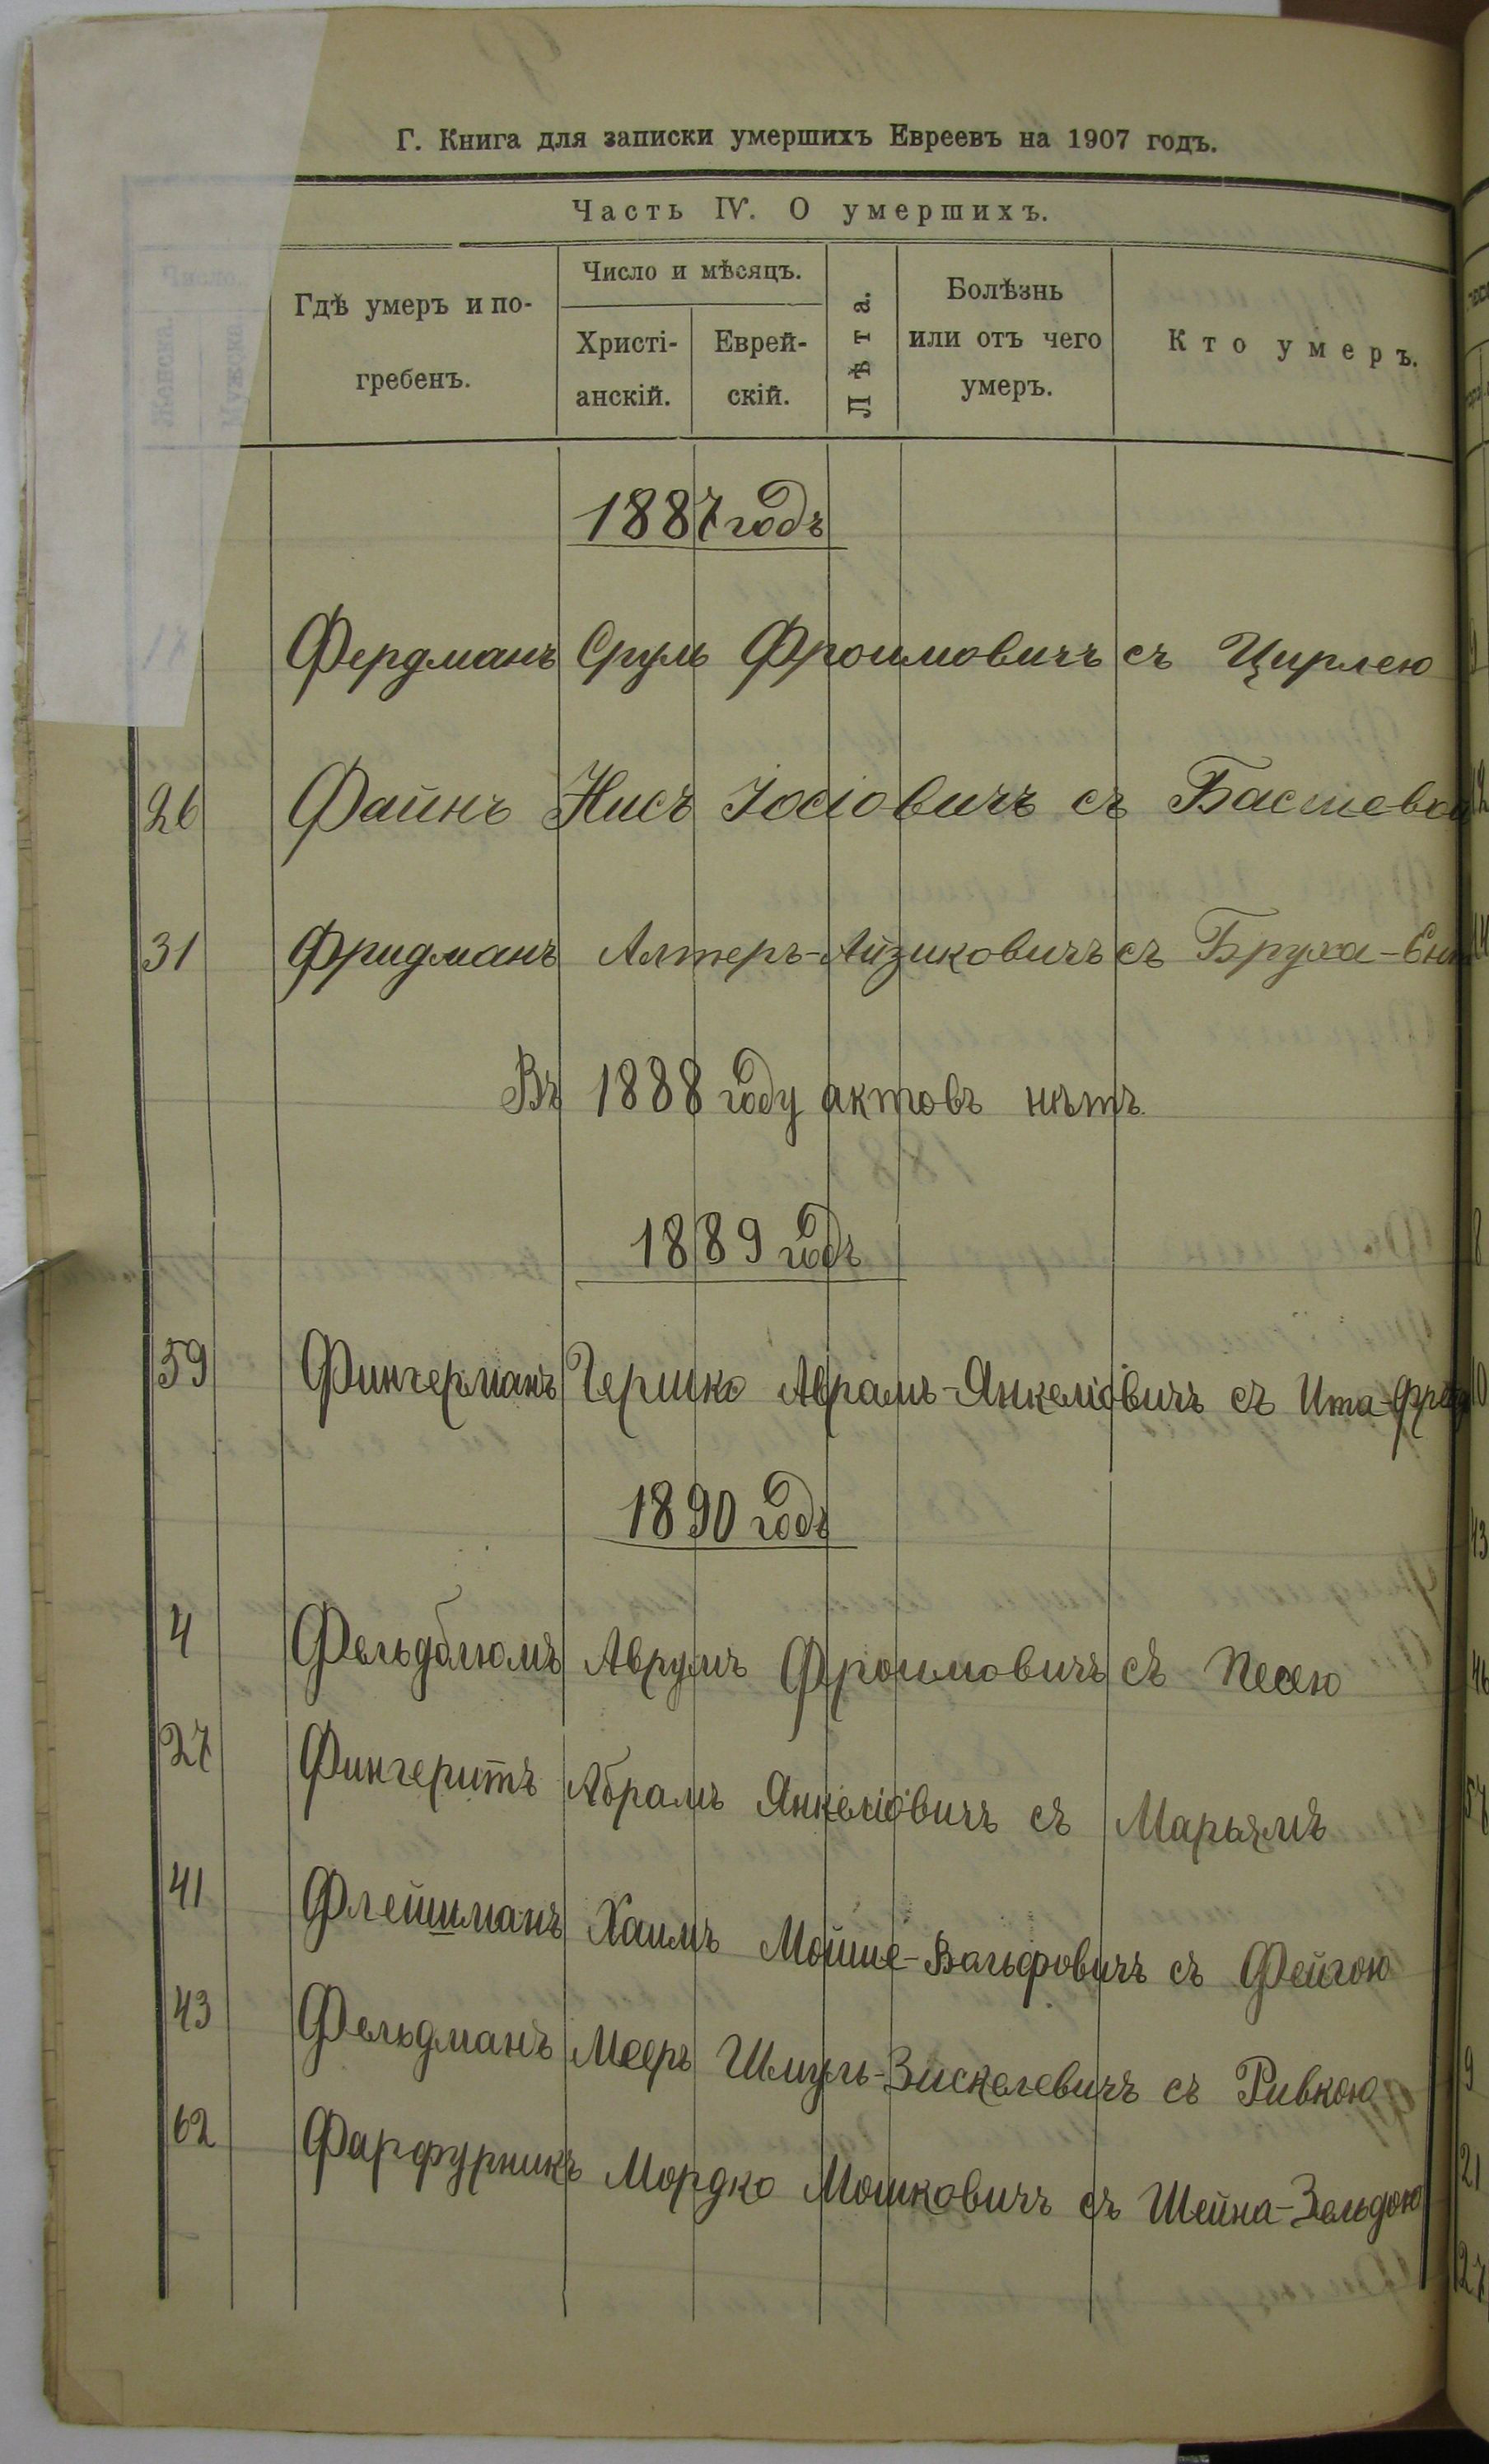 Г. Книга для записки умершихъ Евреевъ на 1907 годъ.
Часть IV. О умершихъ.
Число.
Женска.
Мужска.
Гдѣ умеръ и по-
гребенъ.
Число и мѣсяцъ.
Христі-
анскій.
Еврей-
скій.
Лѣта.
Болѣзнь
или отъ чего
умеръ.
Кто умеръ.
1887 годъ
Фердманъ Сруль Фроимовичъ съ Цирлею
26 Файнъ Нисъ Іосіовичъ съ Бастевою
31 Фридманъ Алтеръ-Айзиковичъ съ Бруха-
Въ 1888 году актовъ нѣтъ.
1889 годъ
59 Фингерманъ Гершко Аврамъ-Янкеліовичъ съ Ита-
1890 годъ
4 Фельдблюмъ Аврумъ Фроимовичъ съ Песею
27 Фингеритъ Абрамъ Янкеліовичъ съ Марьямъ
41 Флейшманъ Хаимъ Мойше-Вольфовичъ съ Фейгою
43 Фельдманъ Мееръ Шмуль-Зискелевичъ съ Ривкою
62 Фарфурникъ Мордко Мошковичъ съ Шейна-Зельдою